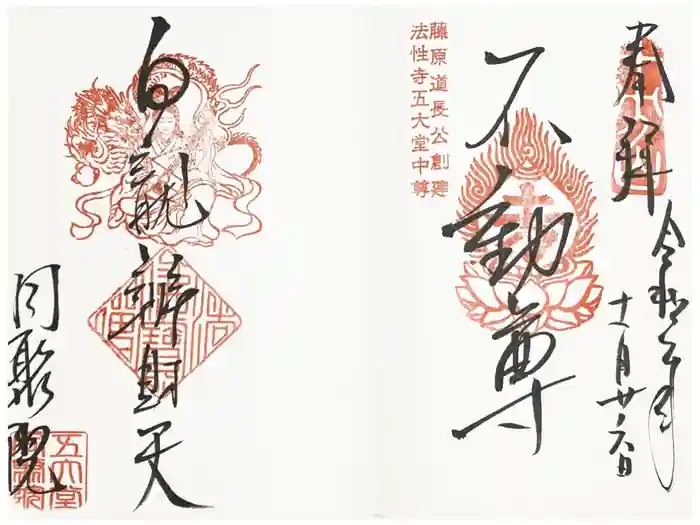 奉拝
令和二年
十一月廿六日
藤原道長公創建
法性寺五大堂中尊
不動尊
白龍辨財天
同聚院
五大堂